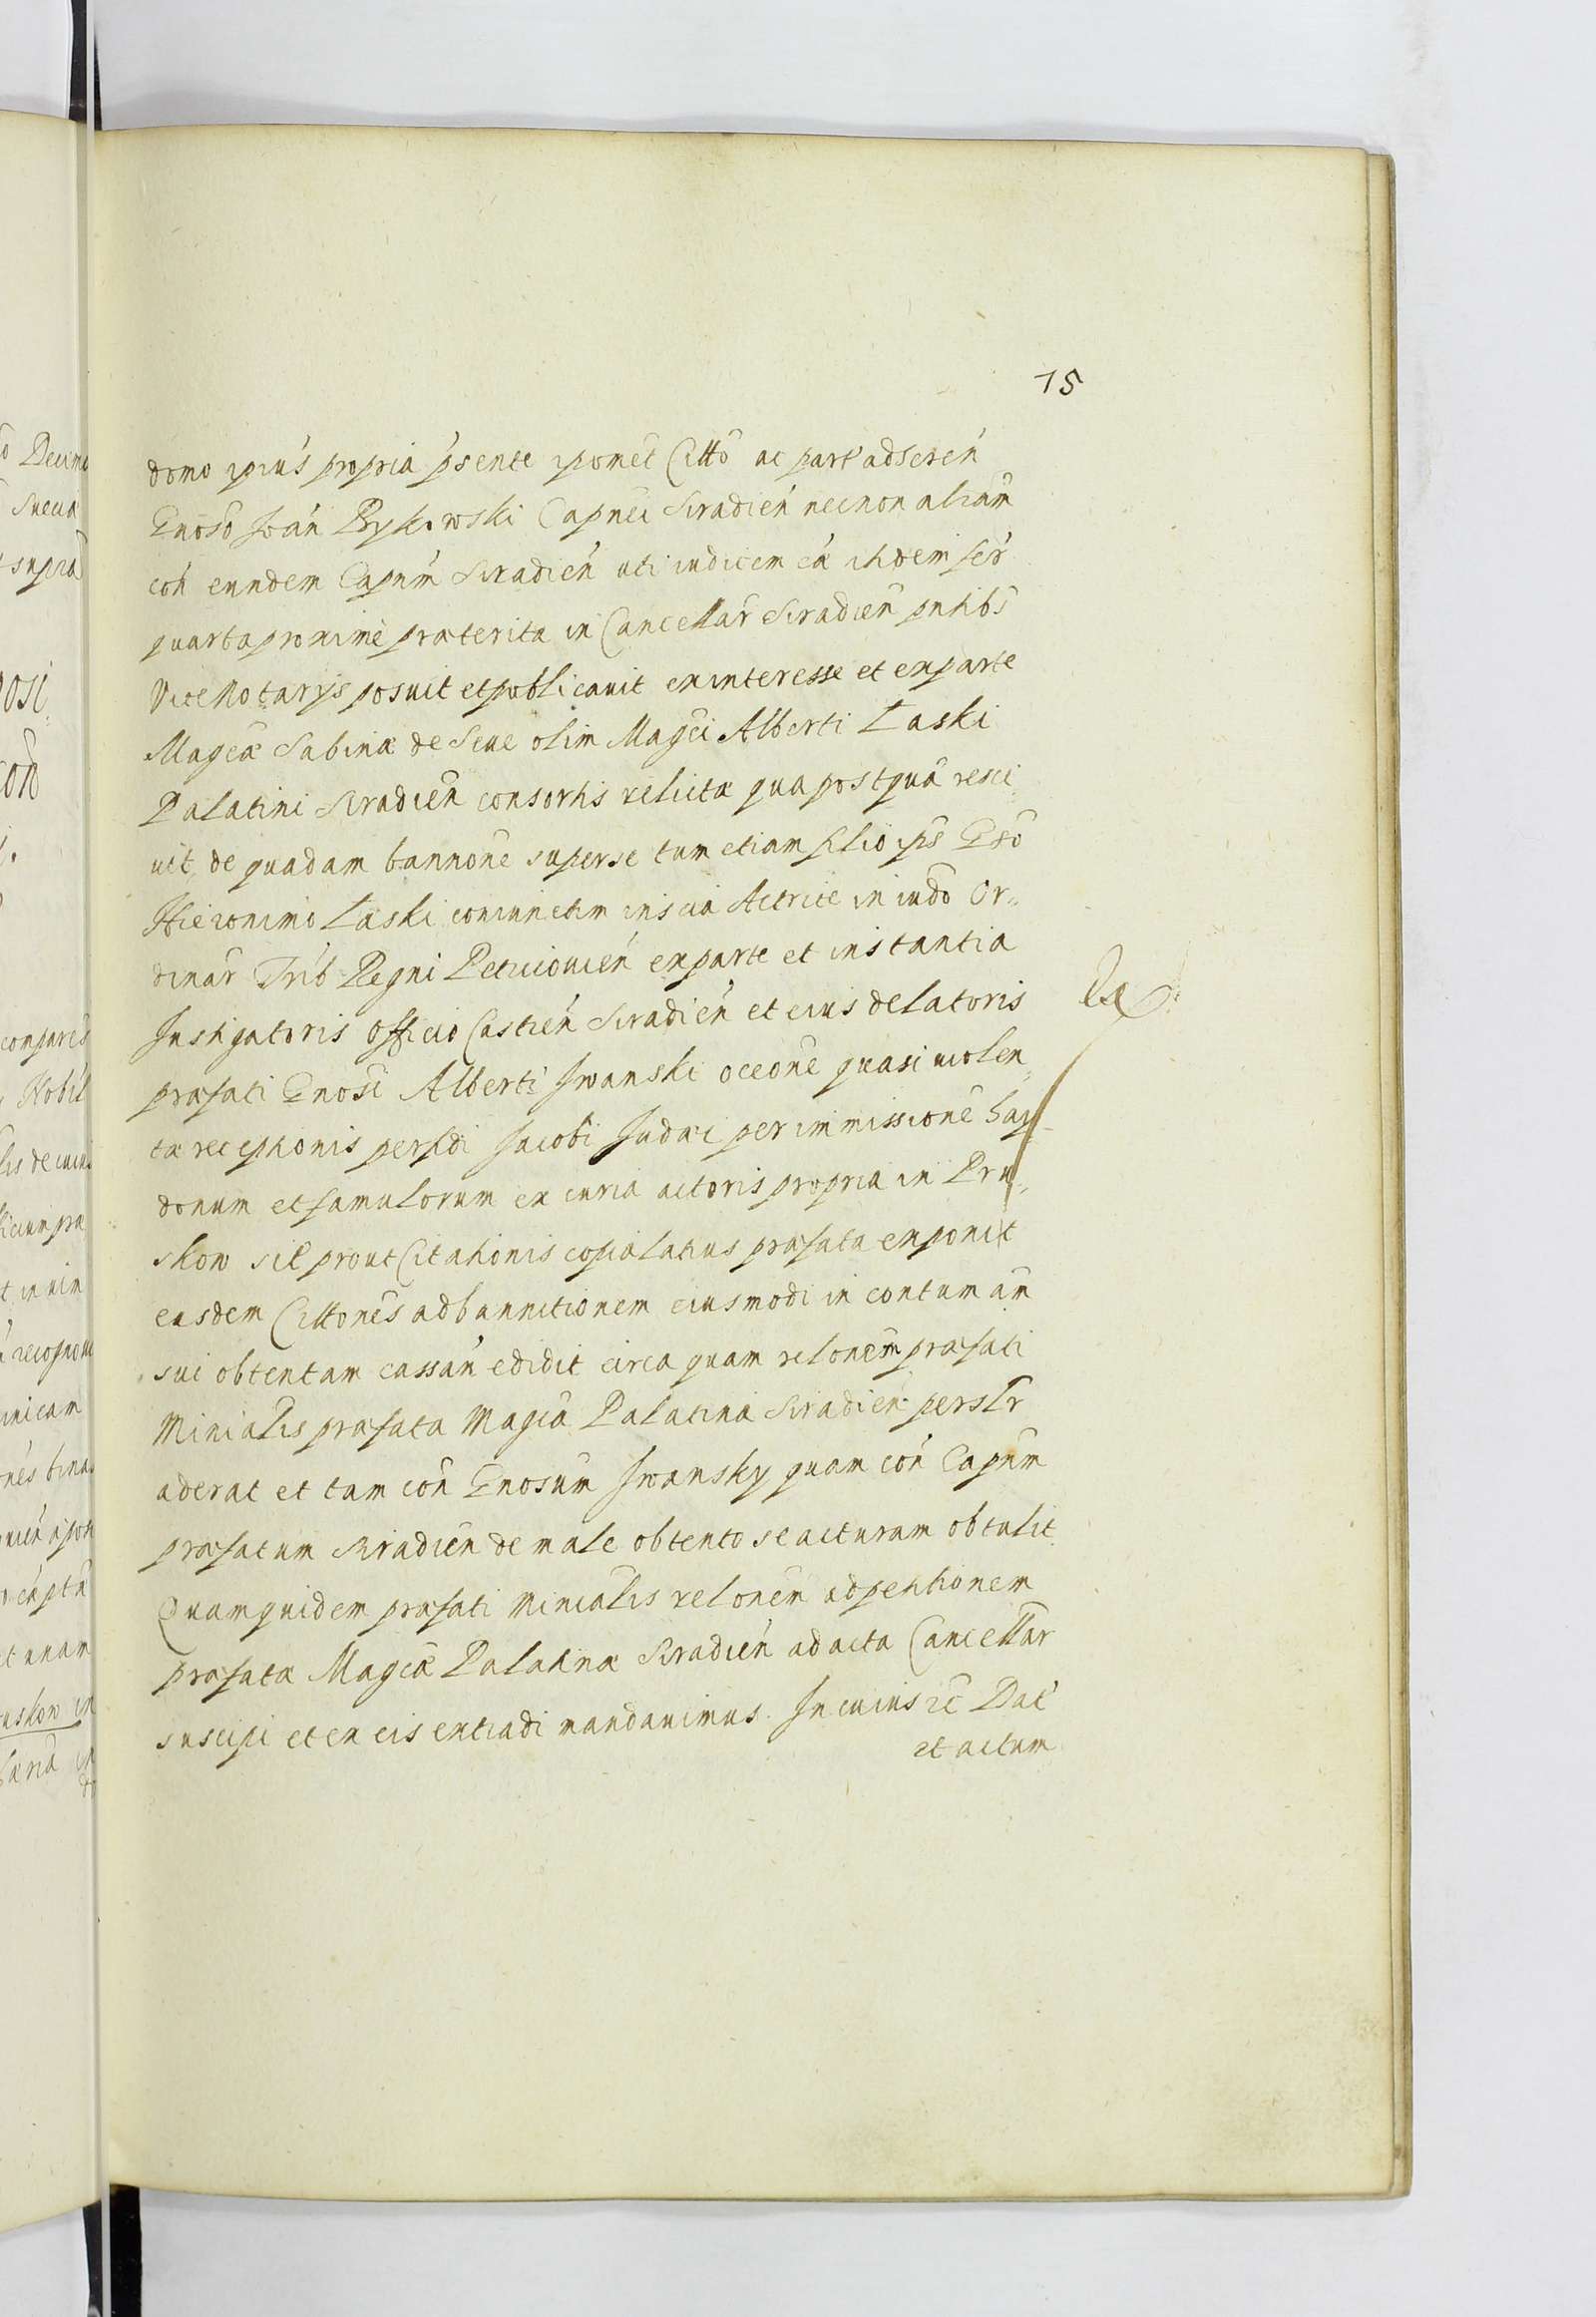 15
domo ipius propria psente ipomet Citto ac part adseren
Gnoso Joan Bykowski Capneo Siradien necnon aliam
con eundem Capnm Siradien uti iudicem ea ibidem fer
quarta proxime praeterita in Cancellar Siradien pntibs
Vice Notarys posuit et publicavit ex interesse et ex parte
Magcæ Sabinæ de Seve olim Magci Alberti Laski
Palatini Siradien consortis relictæ qua postquã resci
vit, de quadam bannone super se tum etiam filio ips Gso
Hieronimo Laski coniunctim inscia Actrice in iudo Or„
dinar Trib Regni Petricovien ex parte et instantia
Instigatoris Officio Castren Siradien et eius delatoris
præfati Gnosi Alberti Iwanski occone quasi violen„
tæ receptionis perfidi Jacobi Judæi per immissionẽ hay
donum et famulorum ex curia actoris propria in Pru„
skow sil prout Citationis copia latius præfata exponit
easdem Cittones ad bannitionem eiusmodi in contum am
sui obtentam cassan edidit circa quam relonem præfati
Minialis præfata Magca Palatina Siradien perslr
aderat et tam con Gnosum Iwansky quam con Capnm
præfatum Siradien de male obtento se acturam obtulit
Quamquidem præfati Minialis relonem ad petitionem
præfatæ Magcæ Palatinæ Siradien ad acta Cancellar
suscipi et ex eis extradi mandavimus. In cuius rc Dat
et actum